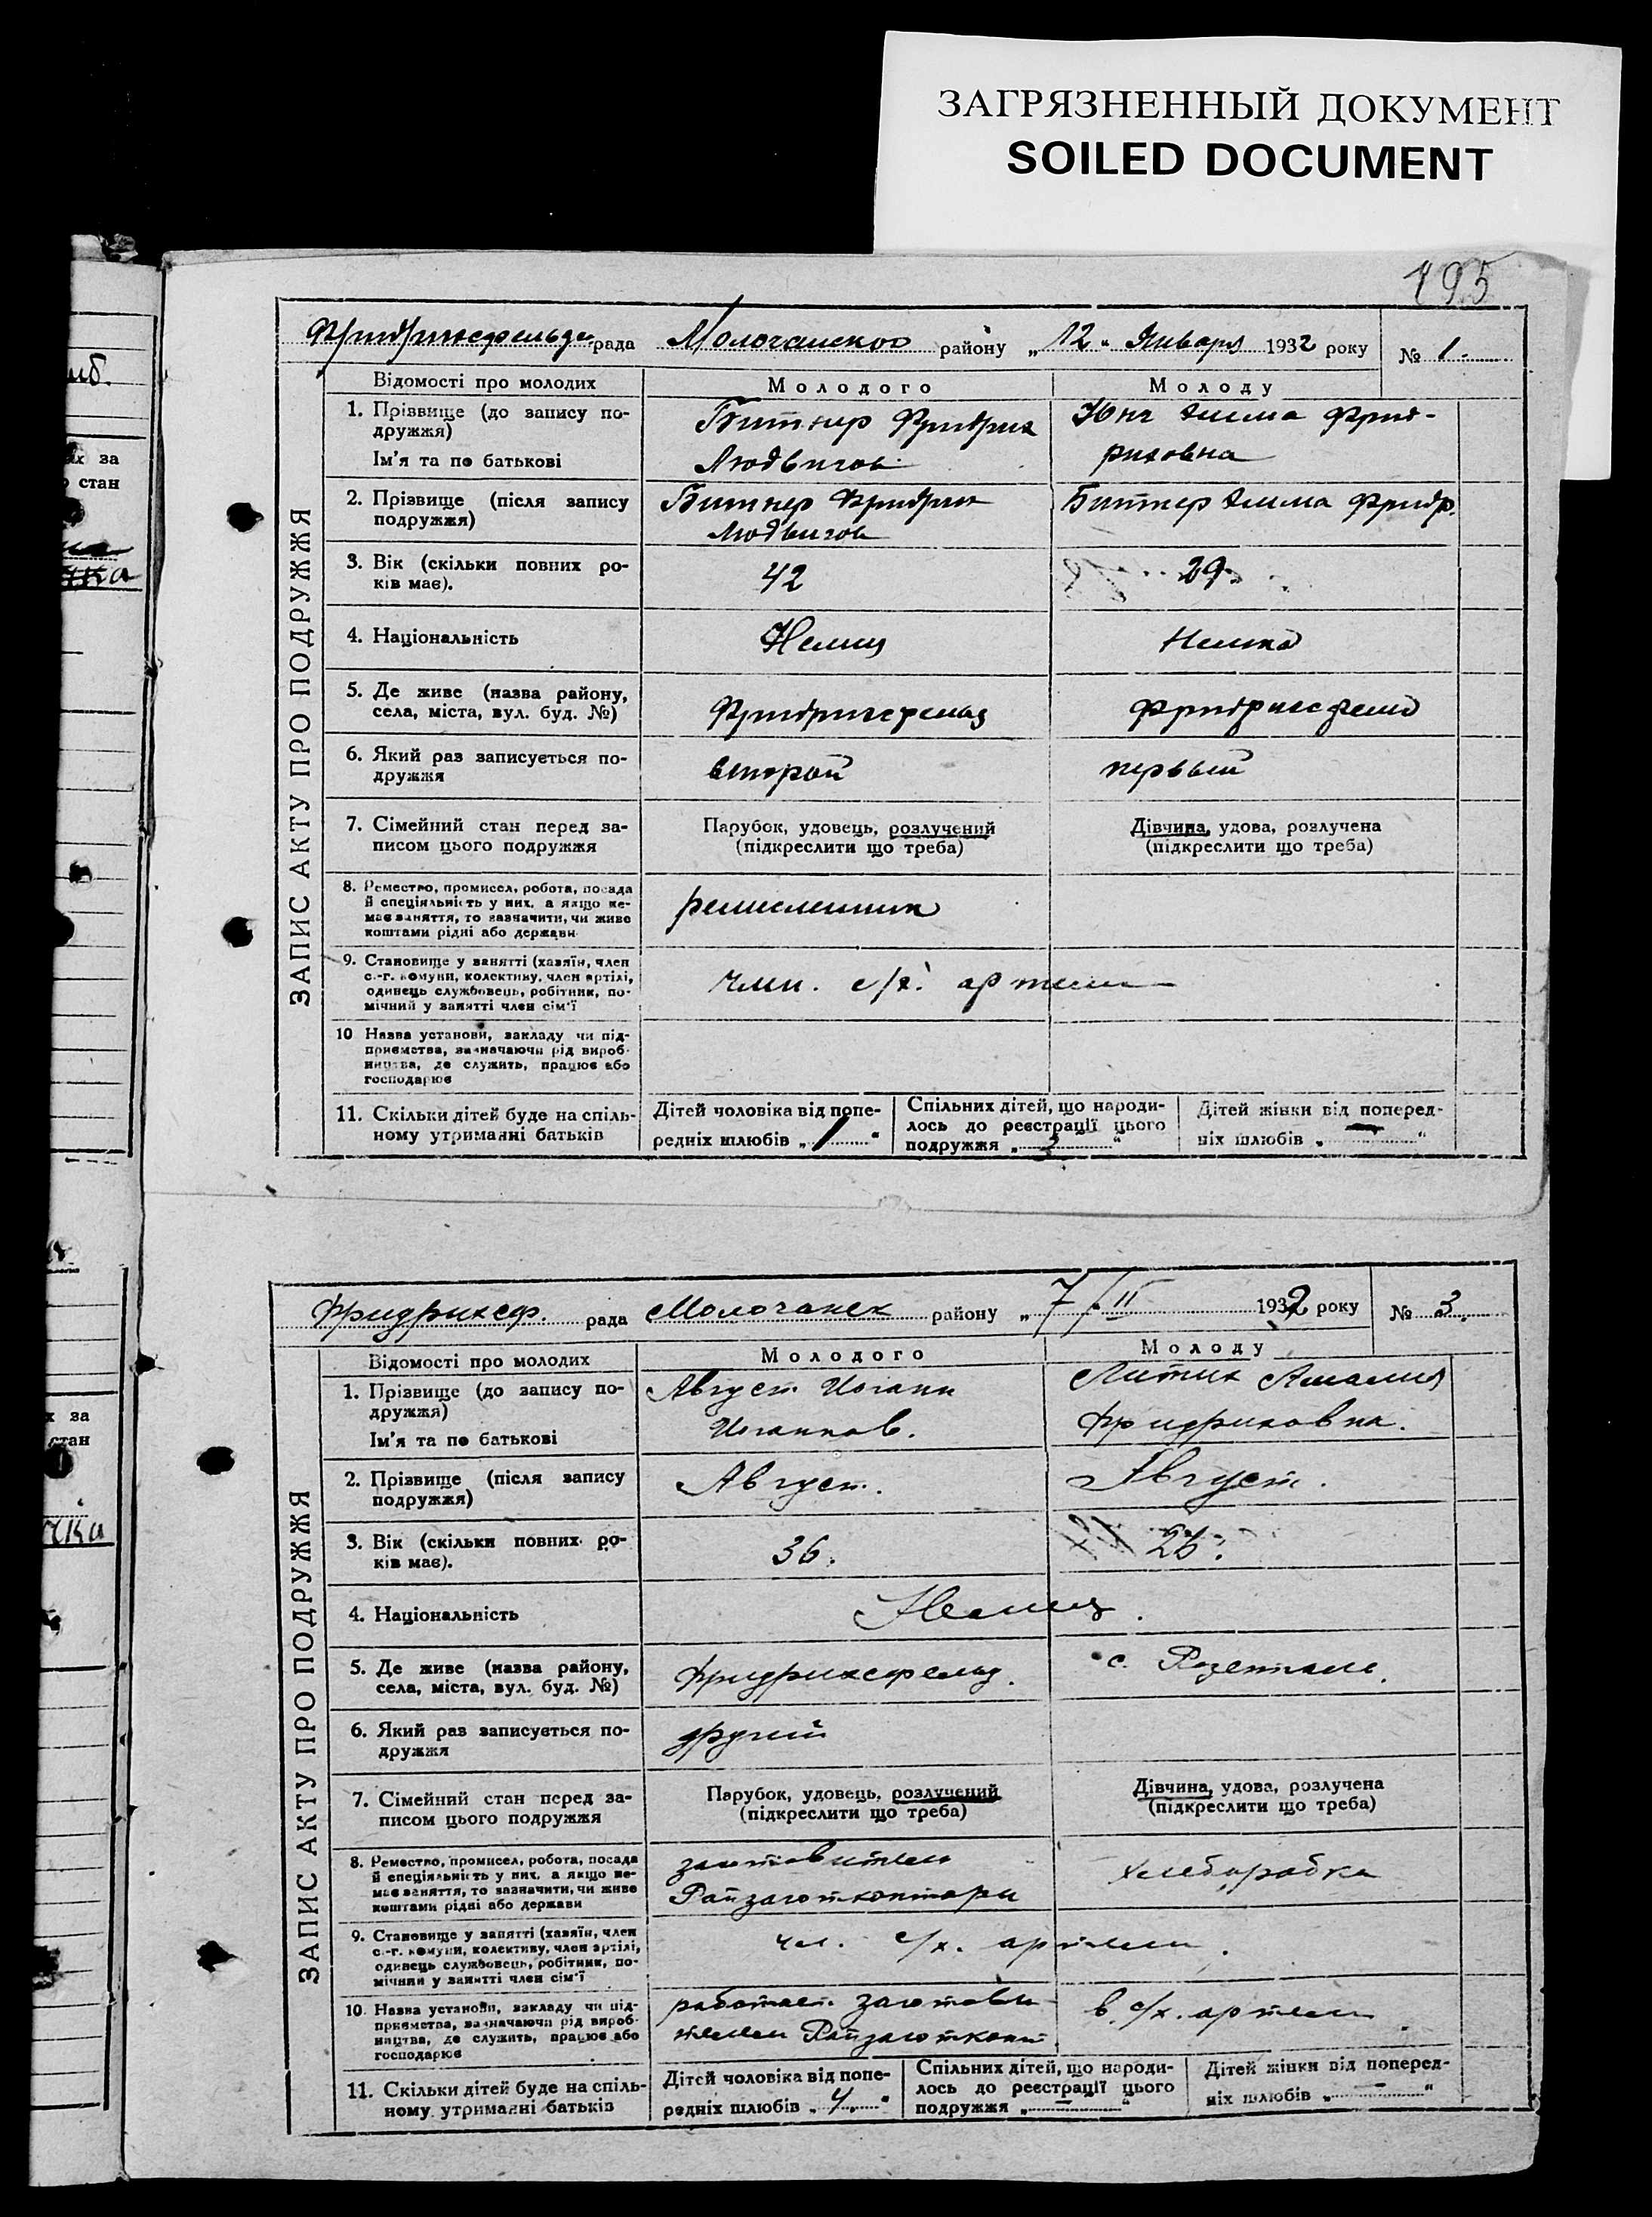 ЗАГРЯЗНЕННЫЙ ДОКУМЕНТ
SOILED DOCUMENT
195
рада Молочанского району „12“ Января 1932 року № 1.
ЗАПИС АКТУ ПРО ПОДРУЖЖЯ
Відомості про молодих Молодого Молоду
1. Прізвище (до запису по-
дружжя)
Ім'я та по батькові
Битнер Фридрих
Людвигов.
Юнг Эмма Фрид-
риховна
2. Прізвище (після запису
подружжя)
Битнер Фридрих
Людвигов
Битнер Эмма Фридр.
3. Вік (скільки повних ро-
ків має).
42
29.
4. Національність
Немец
Немка
5. Де живе (назва району,
села, міста, вул. буд. №)
Фридрихсфельд
Фридрихсфельд
6. Який раз записується по-
дружжя
второй
первый
7. Сімейний стан перед за-
писом цього подружжя
Парубок, удовець, розлучений
(підкреслити що треба)
Дівчина, удова, розлучена
(підкреслити що треба)
8. Ремество, промисел, робота, посада
й спеціяльність у них, а якщо не-
має заняття, то зазначити, чи живе
коштами рідні або держави
9. Становище у занятті (хазяїн, член
с.-г. комуни, колективу, член артілі,
одинець службовець, робітник, по-
мічний у занятті член сім'ї
член. с/х. артели
10 Назва установи, закладу чи під-
приємства, зазначаючи рід вироб-
ництва, де служить, працює або
господарює
11. Скільки дітей буде на спіль-
ному утриманні батьків
Дітей чоловіка від попе-
редніх шлюбів „ 1 “
Спільних дітей, що народи-
лось до реєстрації цього
подружжя „ “
Дітей жінки від поперед-
ніх шлюбів „ — “
Фридрихсф. рада Молочанск району „ 7/II 1932 року № 3.
ЗАПИС АКТУ ПРО ПОДРУЖЖЯ
Відомості про молодих Молодого Молоду
1. Прізвище (до запису по-
дружжя)
Ім'я та по батькові
Август Иоганн
Иоганнов.
Амалия
Фридриховна.
2. Прізвище (після запису
подружжя)
Август.
Август.
3. Вік (скільки повних ро-
ків має).
36.
4. Національність
Немец.
5. Де живе (назва району,
села, міста, вул. буд. №)
Фридрихсфельд.
с. Розенталь.
6. Який раз записується по-
дружжя
другий
7. Сімейний стан перед за-
писом цього подружжя
Парубок, удовець, розлучений
(підкреслити що треба)
Дівчина, удова, розлучена
(підкреслити що треба)
8. Ремество, промисел, робота, посада
й спеціяльність у них, а якщо не-
має заняття, то зазначити, чи живе
коштами рідні або держави
Райзаготконтори
хлеборобка
9. Становище у занятті (хазяїн, член
с.-г. комуни, колективу, член артілі,
одинець службовець, робітник, по-
мічний у занятті член сім'ї
чл. с/х. артели.
10. Назва установи, закладу чи під-
приємства, зазначаючи рід вироб-
ництва, де служить, працює або
господарює
работает заготови-
телем Райзаготконт.
в с/х. артели.
11. Скільки дітей буде на спіль-
ному утриманні батьків
Дітей чоловіка від попе-
редніх шлюбів „ 4. “
Спільних дітей, що народи-
лось до реєстрації цього
подружжя „ — “
Дітей жінки від поперед-
ніх шлюбів „ — “